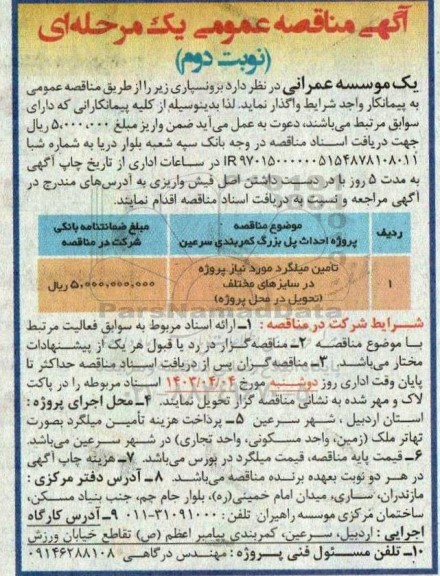 آگهی مناقصه عمومی یک مرحله‌ای
(نوبت دوم)
یک موسسه عمرانی در نظر دارد برونسپاری زیر را از طریق مناقصه عمومی
به پیمانکار واجد شرایط واگذار نماید. لذا بدینوسیله از کلیه پیمانکارانی که دارای
سوابق مرتبط می‌باشند، دعوت به عمل می‌آید ضمن واریز مبلغ ۵،۰۰۰،۰۰۰ ریال
جهت دریافت اسناد مناقصه در وجه بانک سپه شعبه بلوار دریا به شماره شبا
IR۹۷۰۱۵۰۰۰۰۰۰۵۱۵۴۸۷۸۱۰۸۰۱۱ در ساعات اداری از تاریخ چاپ آگهی
به مدت ۵ روز با در دست داشتن اصل فیش واریزی به آدرس‌های مندرج در
آگهی مراجعه و نسبت به دریافت اسناد مناقصه اقدام نمایند.
ردیف موضوع مناقصه مبلغ ضمانتنامه بانکی
پروژه احداث پل بزرگ کمربندی سرعین شرکت در مناقصه
۱ تامین میلگرد مورد نیاز پروژه
در سایزهای مختلف ۵،۰۰۰،۰۰۰،۰۰۰ ریال
(تحویل در محل پروژه)
ParsNamadData
شرایط شرکت در مناقصه : ۱ـ ارائه اسناد مربوط به سوابق فعالیت مرتبط
با موضوع مناقصه ۲ـ مناقصه‌گزار در رد یا قبول هر یک از پیشنهادات
مختار می‌باشد. ۳ـ مناقصه‌گران پس از دریافت اسناد مناقصه حداکثر تا
پایان وقت اداری روز دوشنبه مورخ ۱۴۰۳/۰۴/۰۴ اسناد مربوطه را در پاکت
لاک و مهر شده به نشانی مناقصه گزار تحویل نمایند. ۴ـ محل اجرای پروژه :
استان اردبیل ، شهر سرعین ۵ـ پرداخت هزینه تأمین میلگرد بصورت
تهاتر ملک (زمین، واحد مسکونی، واحد تجاری) در شهر سرعین می‌باشد.
۶ـ قیمت پایه مناقصه، قیمت میلگرد در بورس می‌باشد. ۷ـ هزینه چاپ آگهی
در هر دو نوبت بعهده برنده مناقصه می‌باشد. ۸ـ آدرس دفتر مرکزی :
مازندران، ساری، میدان امام خمینی(ره)، بلوار جام جم، جنب بنیاد مسکن،
ساختمان مرکزی موسسه راهبران تلفن: ۳۱۰۹۱۰۰۰-۰۱۱ ۹ـ آدرس کارگاه
اجرایی : اردبیل، سرعین، کمربندی پیامبر اعظم (ص) تقاطع خیابان ورزش
۱۰ـ تلفن مسئول فنی پروژه : مهندس درگاهی ۰۹۱۴۶۲۸۸۱۰۸